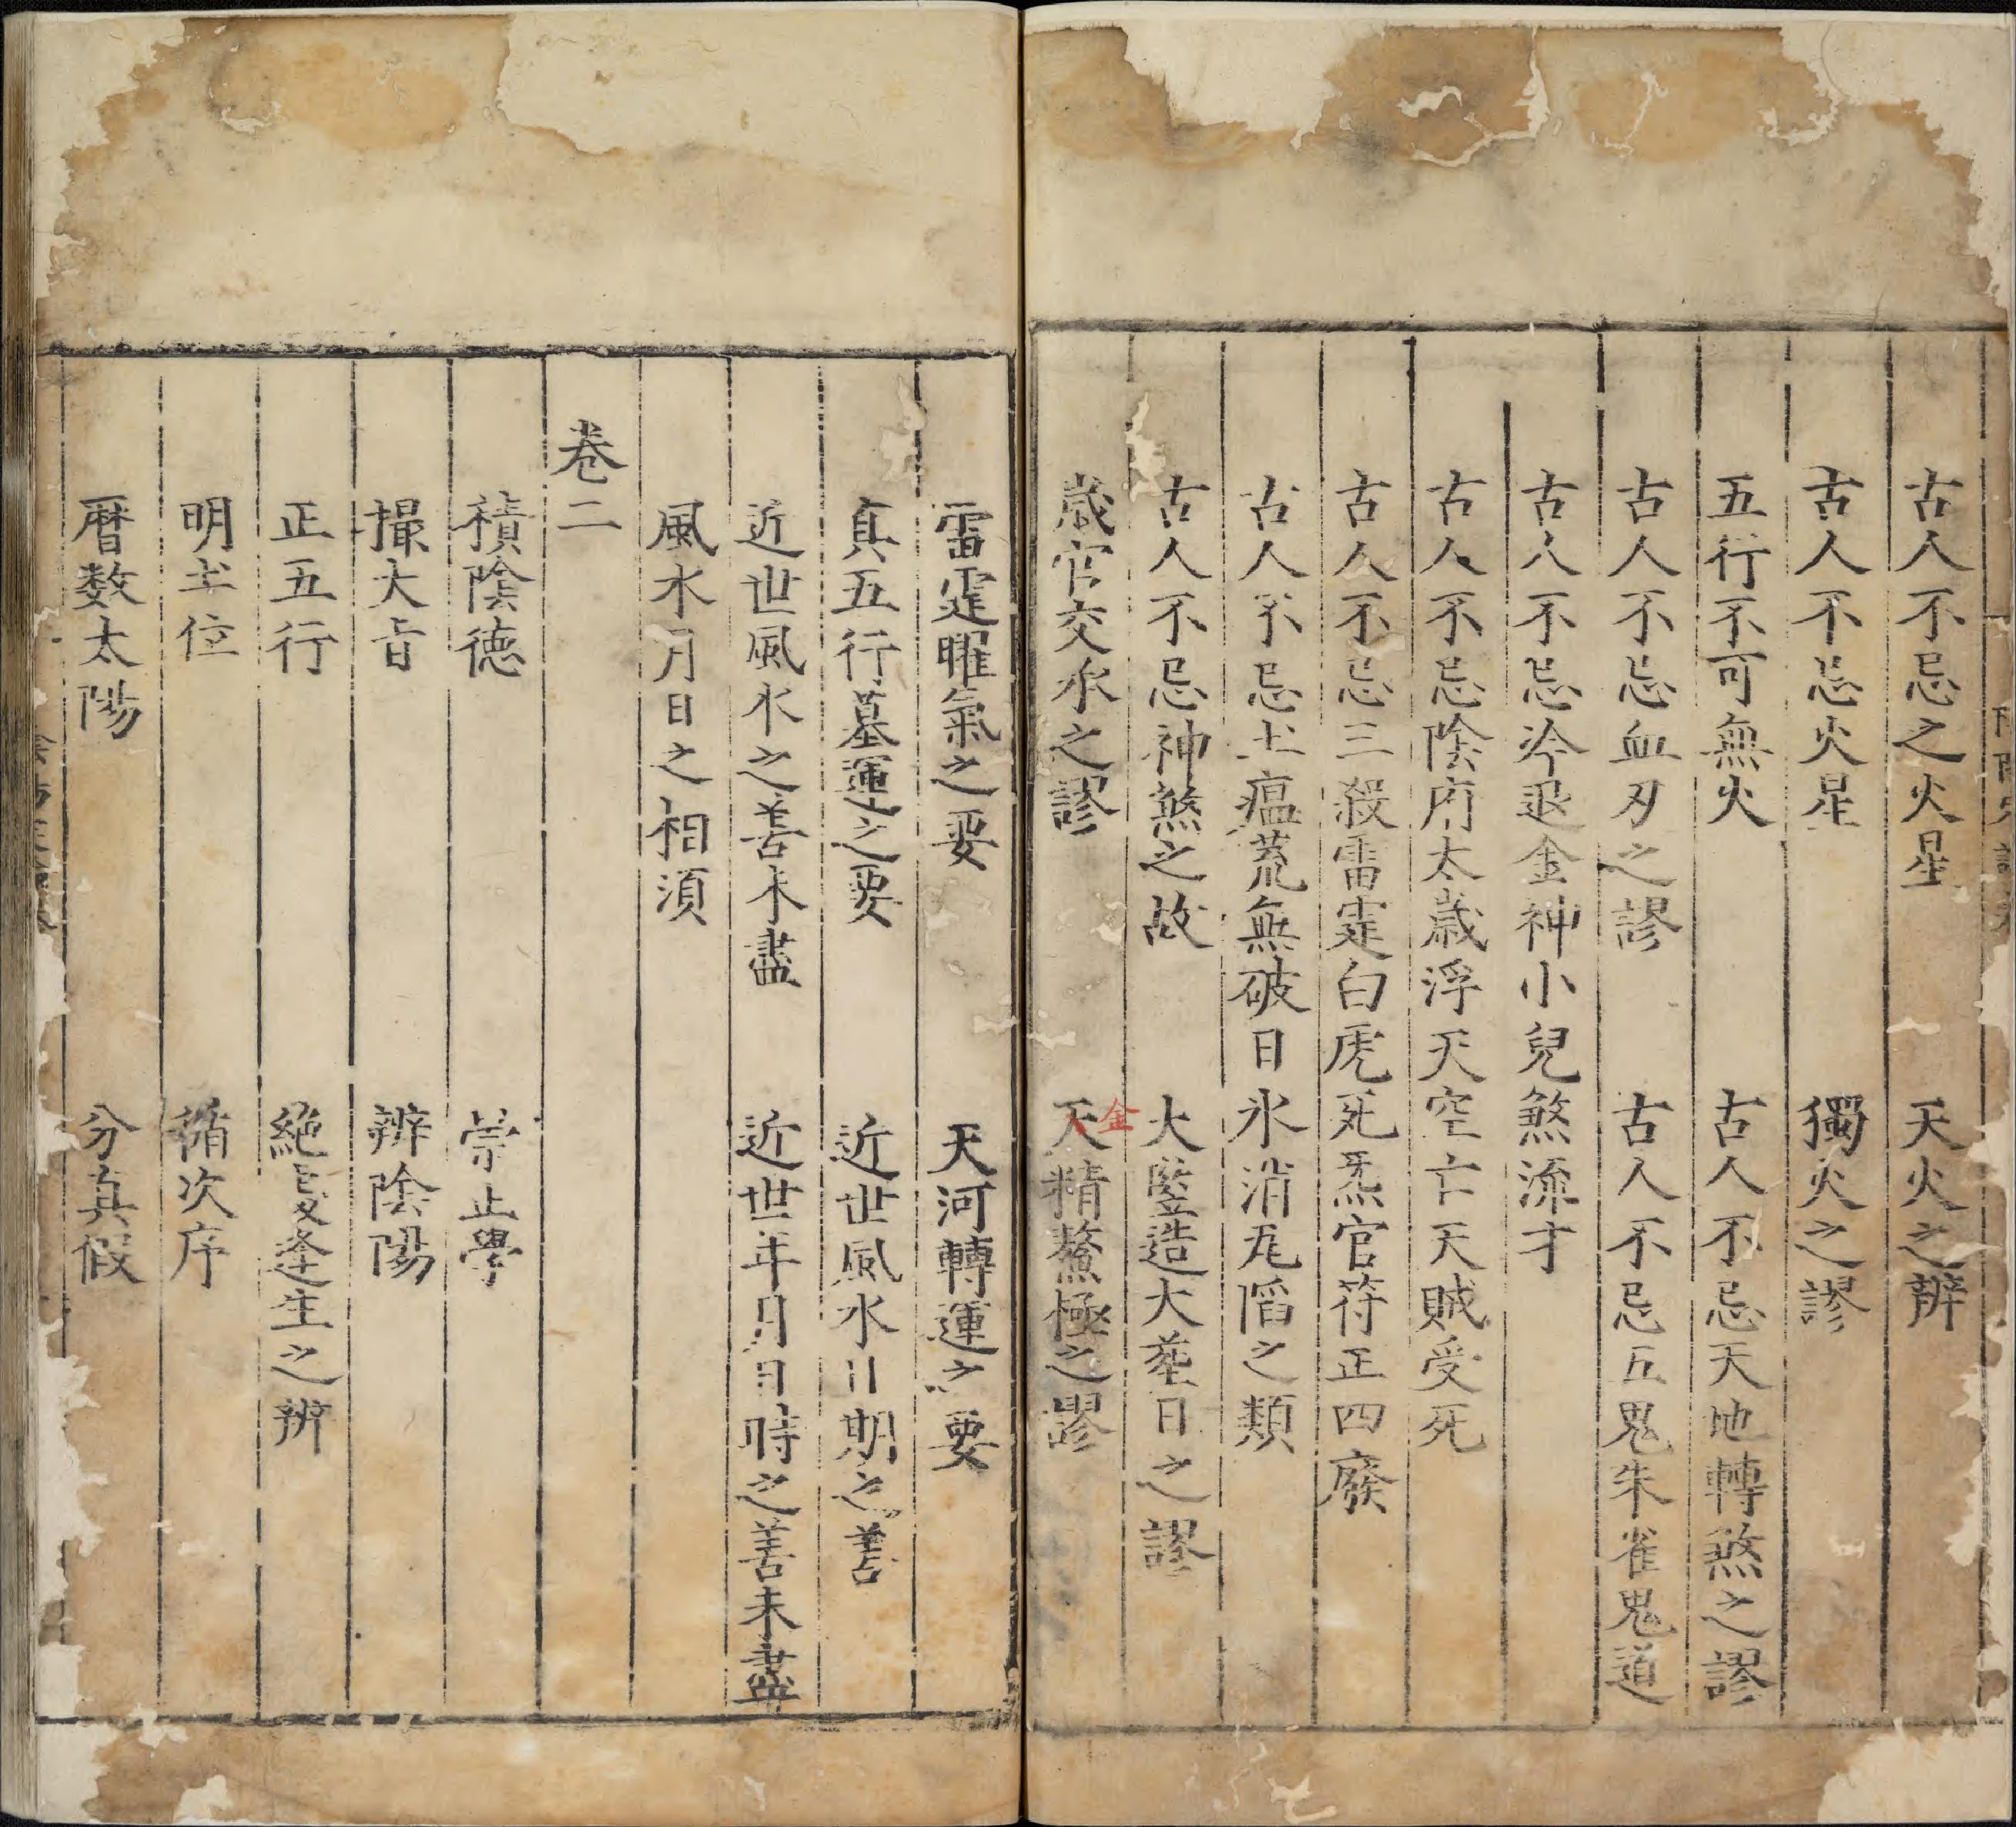 古人不忌之火星　天火之辨
古人不忌火星　獨火之謬
五行不可無火　古人不忌天地轉煞之謬
古人不忌血刃之謬　古人不忌五鬼朱雀鬼道
古人不忌冷退金神小兒煞流才
古人不忌陰府太歲浮天空亡天賊受死
古人不忌三殺雷霆白虎死炁官符正四廢
古人不忌土瘟荒無破日氷消瓦陷之類
古人不忌神煞之故　大竪造大葬日之謬
歲官交承之謬　天精鰲極之謬
金
雷霆曜氣之要　天河轉運之要
真五行墓運之要　近世風水日期之善
近世風水之善未盡　近世年月日時之善未盡
風水月日之相須
卷二
積陰德　崇正學
撮大旨　辨陰陽
正五行　絕處逢生之辨
明坐位　循次序
曆数太陽　分真假